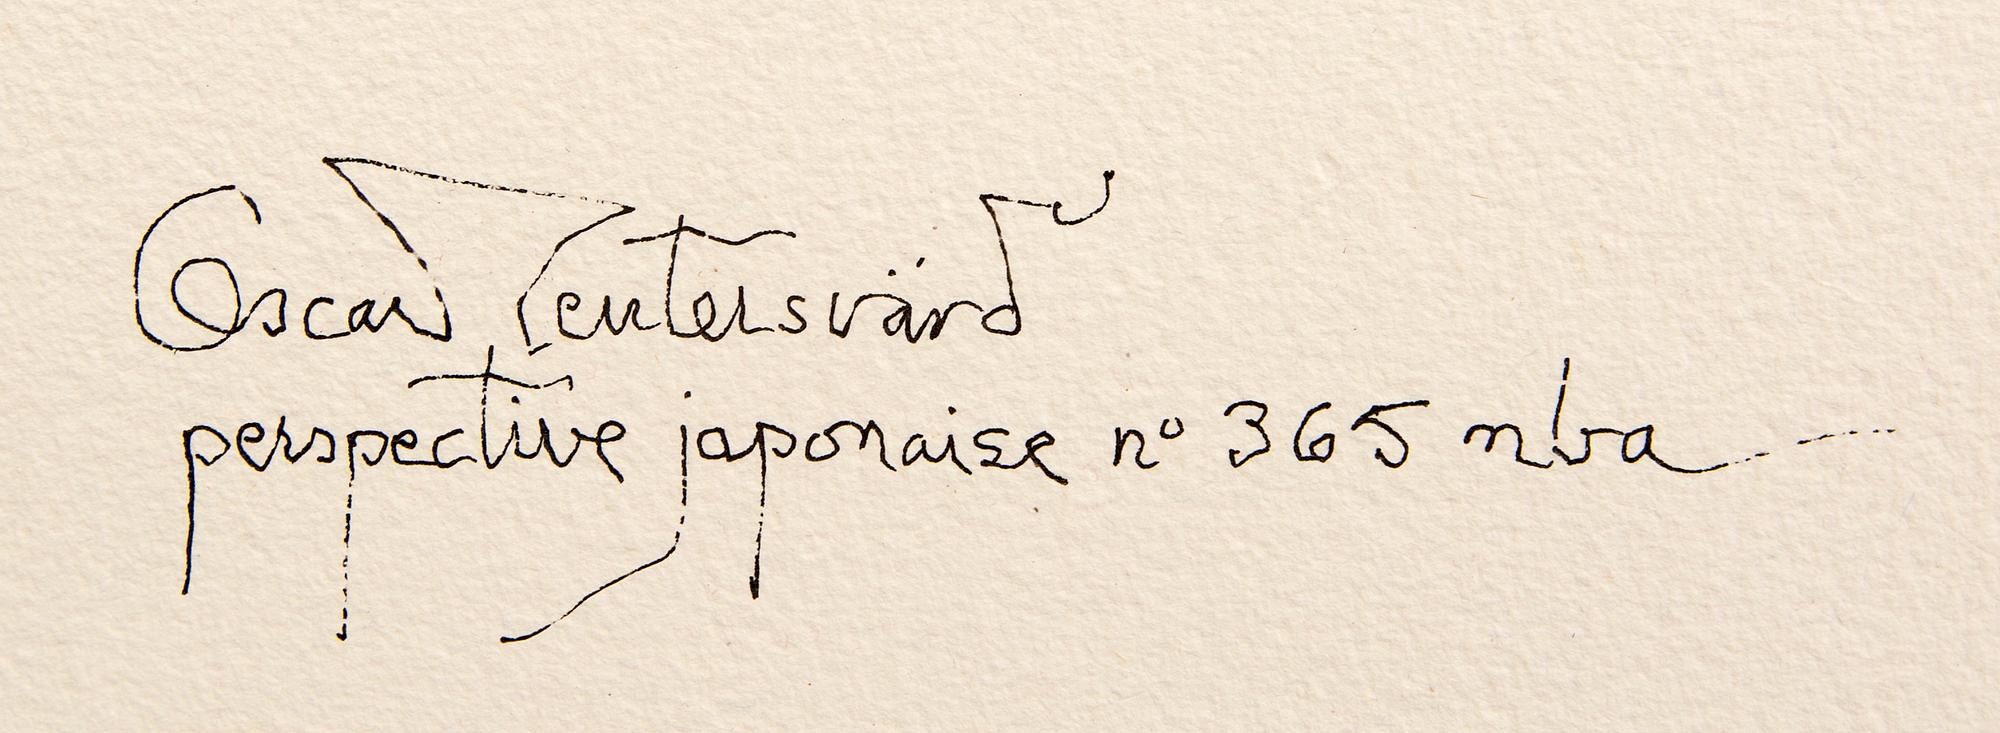 Oscar Reutersvärd
perspective japonaise nº 365 nba